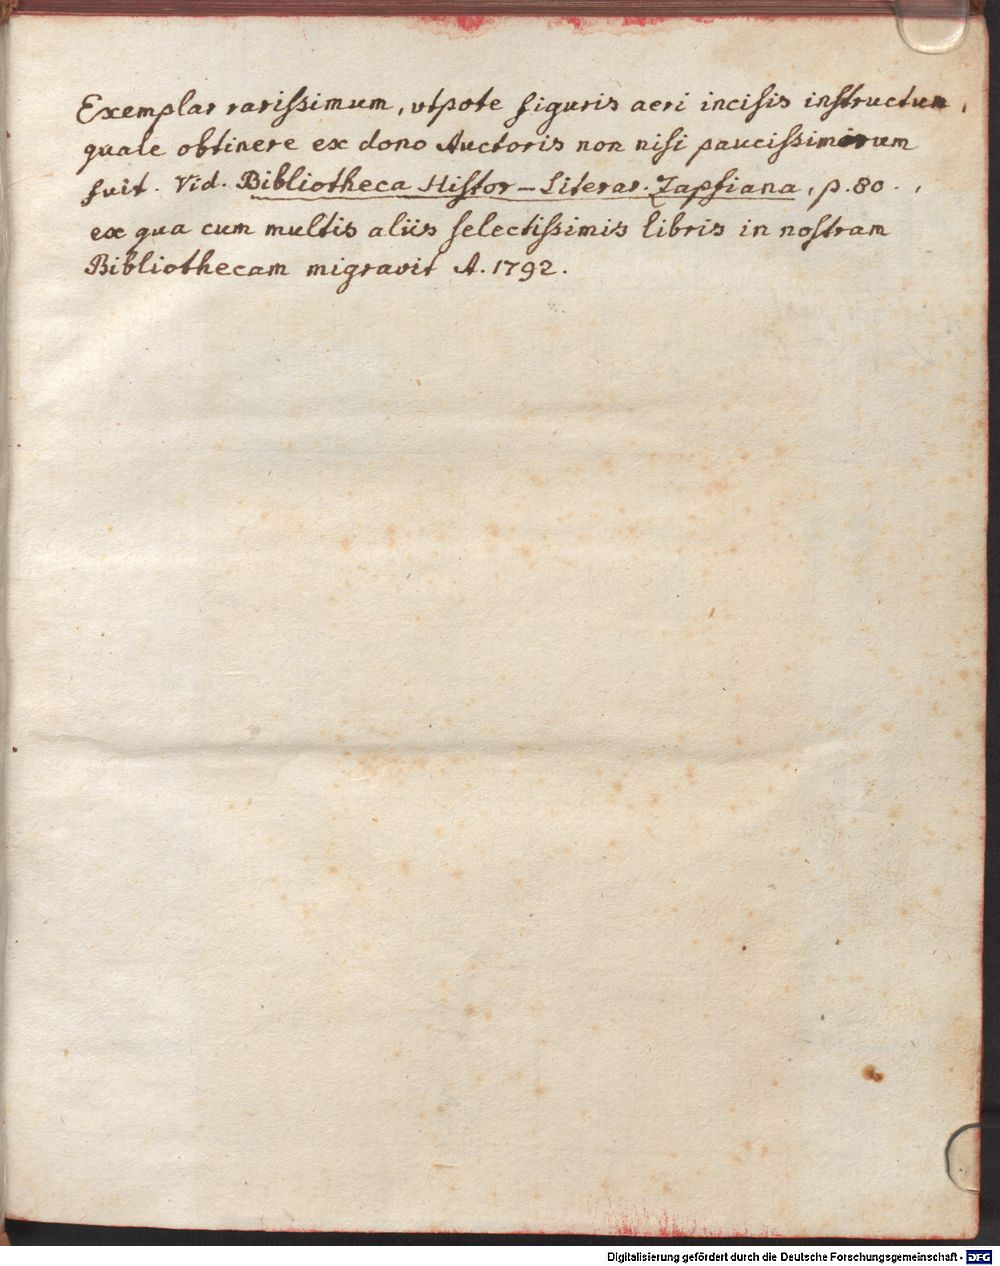 Exemplar rarissimum, utpote figuris aeri incisis instructum,
quale obtinere ex dono Auctoris non nisi paucissimorum
fuit. Vid. Bibliotheca Histor-Literar. Zapfiana, p. 80.,
ex qua cum multis aliis selectissimis libris in nostram
Bibliothecam migravit A. 1792.
Digitalisierung gefördert durch die Deutsche Forschungsgemeinschaft - DFG